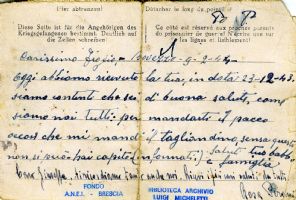 Hier abtrennen!
Détacher le long du pointillé
Diese Seite ist für die Angehörigen des
Kriegsgefangenen bestimmt. Deutlich auf
die Zeilen schreiben
Ce côté est réservé aux parents
du prisonnier de guerre. N'écrire que sur
les lignes et lisiblement!
Carissimo Figlio 9-2-44
Oggi abbiamo ricevuto la tua, in data 23-12-43.
siamo contenti che sei di buona salute, come
siamo noi tutti, per mandarti il pacco
occore che mi mandi il tagliandino, senza questo
non si può hai capito informati, Saluti tuo babbo
e famiglia
FONDO
A.N.E.I. - BRESCIA
BIBLIOTECA ARCHIVIO
LUIGI MICHELETTI